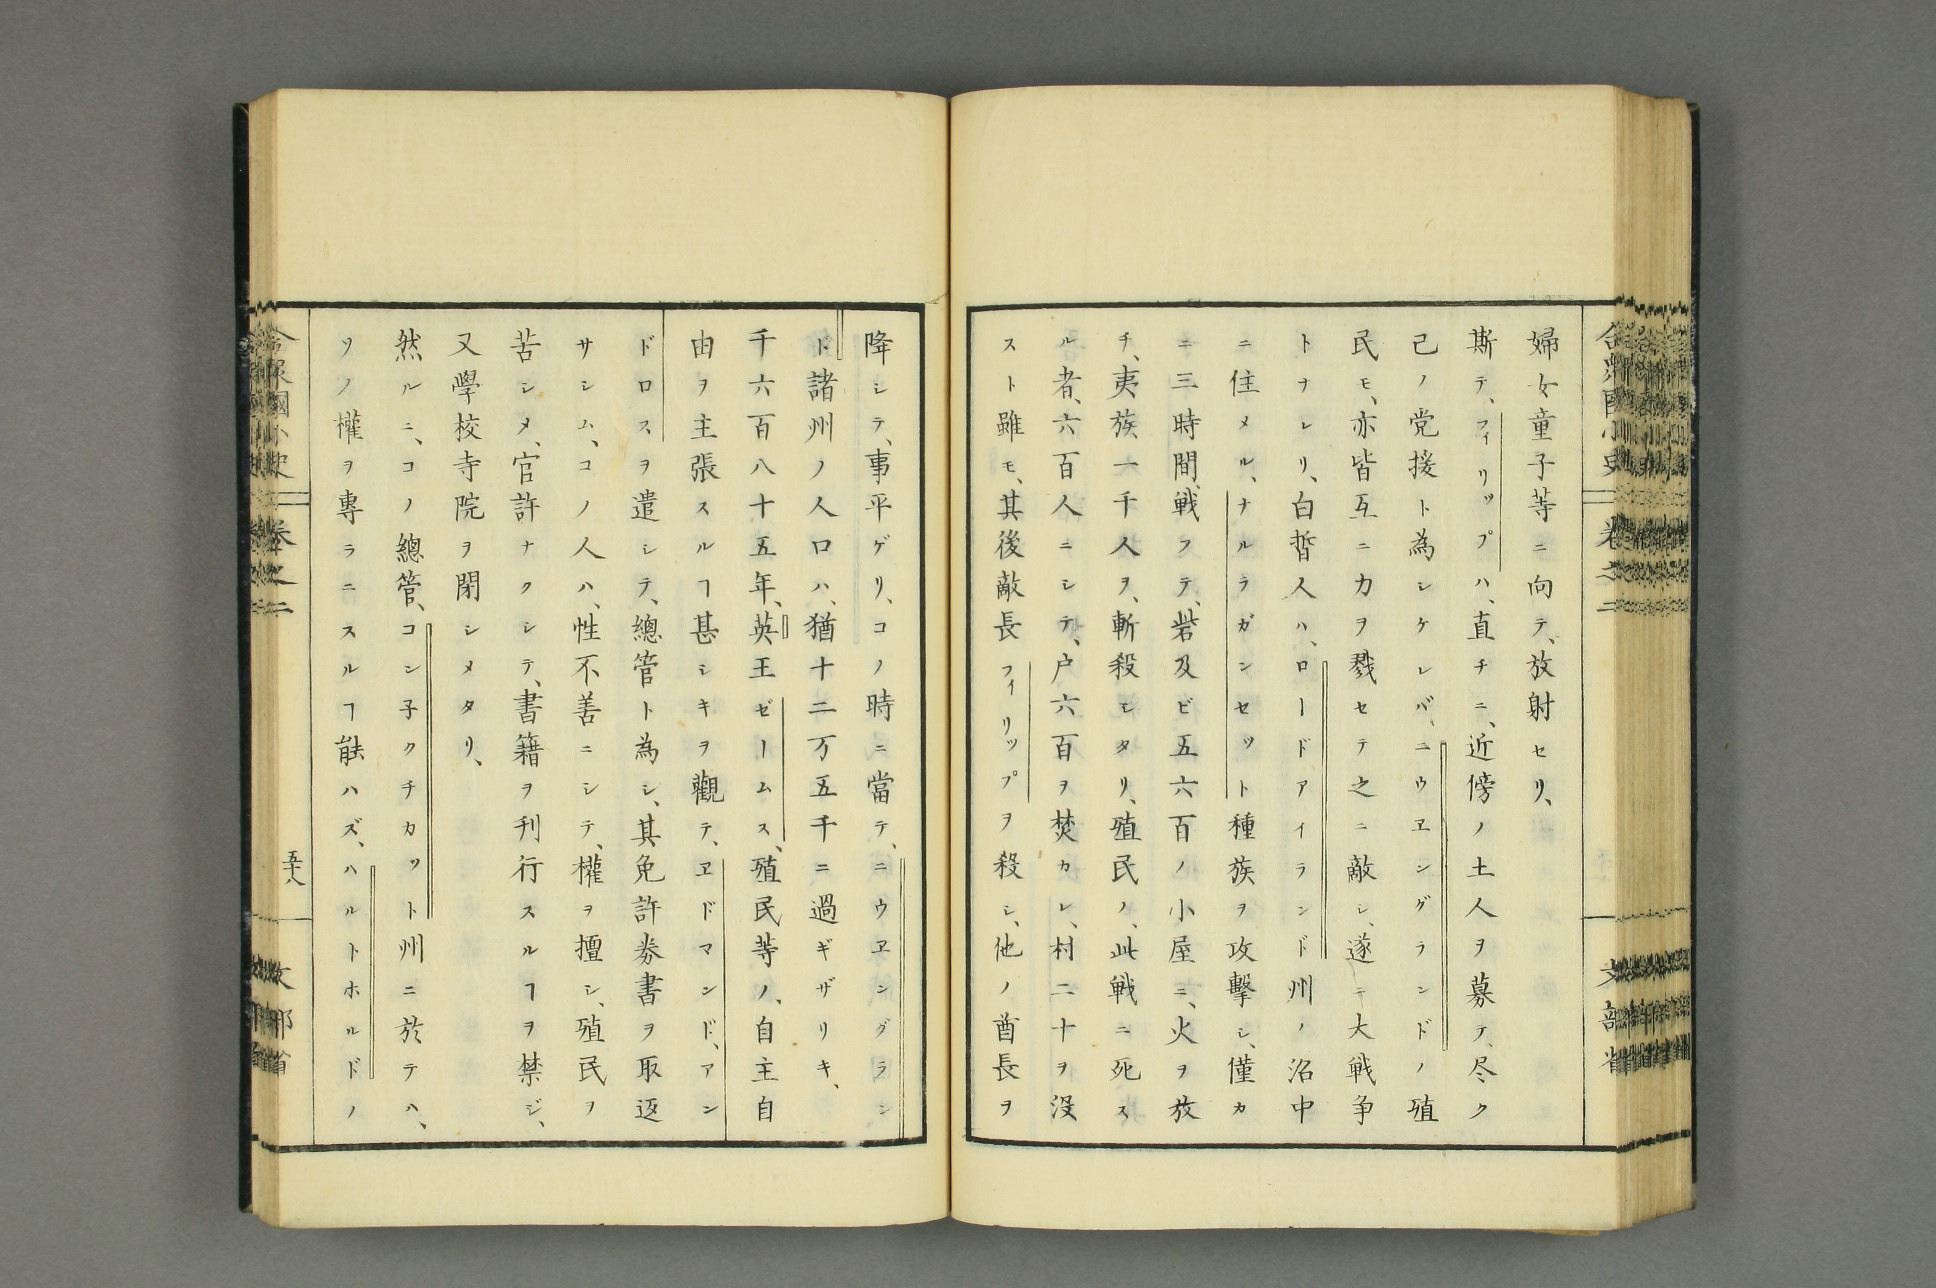 婦女童子等ニ向テ、放射セリ、
斯テ、フィリップハ、直チニ、近傍ノ土人ヲ募テ、尽ク
己ノ党援ト為シケレバ、ニウエングランドノ殖
民モ、亦皆互ニ力ヲ戮セテ之ニ敵シ、遂ニ大戦争
トナレリ、白晳人ハ、ロードアイランド州ノ沼中
ニ住メル、ナルラガンセット種族ヲ攻撃シ、僅カ
ニ三時間、戦フテ、砦及ビ五六百ノ小屋ニ、火ヲ放
チ、夷族、一千人ヲ、斬殺シタリ、殖民ノ、此戦ニ死ス
ル者、六百人ニシテ、戸六百ヲ焚カレ、村二十ヲ没
スト雖モ、其後敵長フィリップヲ殺シ、他ノ酋長ヲ
降シテ、事平ゲリ、コノ時ニ當テ、ニウエングラン
ド諸州ノ人口ハ、猶十二万五千ニ過ギザリキ、
千六百八十五年、英王ゼームス、殖民等ノ、自主自
由ヲ主張スルヿ甚シキヲ觀テ、エドマンド、アン
ドロスヲ遣シテ、總管ト為シ、其免許券書ヲ取返
サシム、コノ人ハ、性不善ニシテ、權ヲ擅シ、殖民ヲ
苦シメ、官許ナクシテ、書籍ヲ刊行スルヿヲ禁ジ、
又學校寺院ヲ閉シメタリ、
然ルニ、コノ總管、コン子クチカット州ニ於テハ、
ソノ權ヲ專ラニスルヿ能ハズ、ハルトホルドノ
合衆國小史 卷之二 五十八 文部省